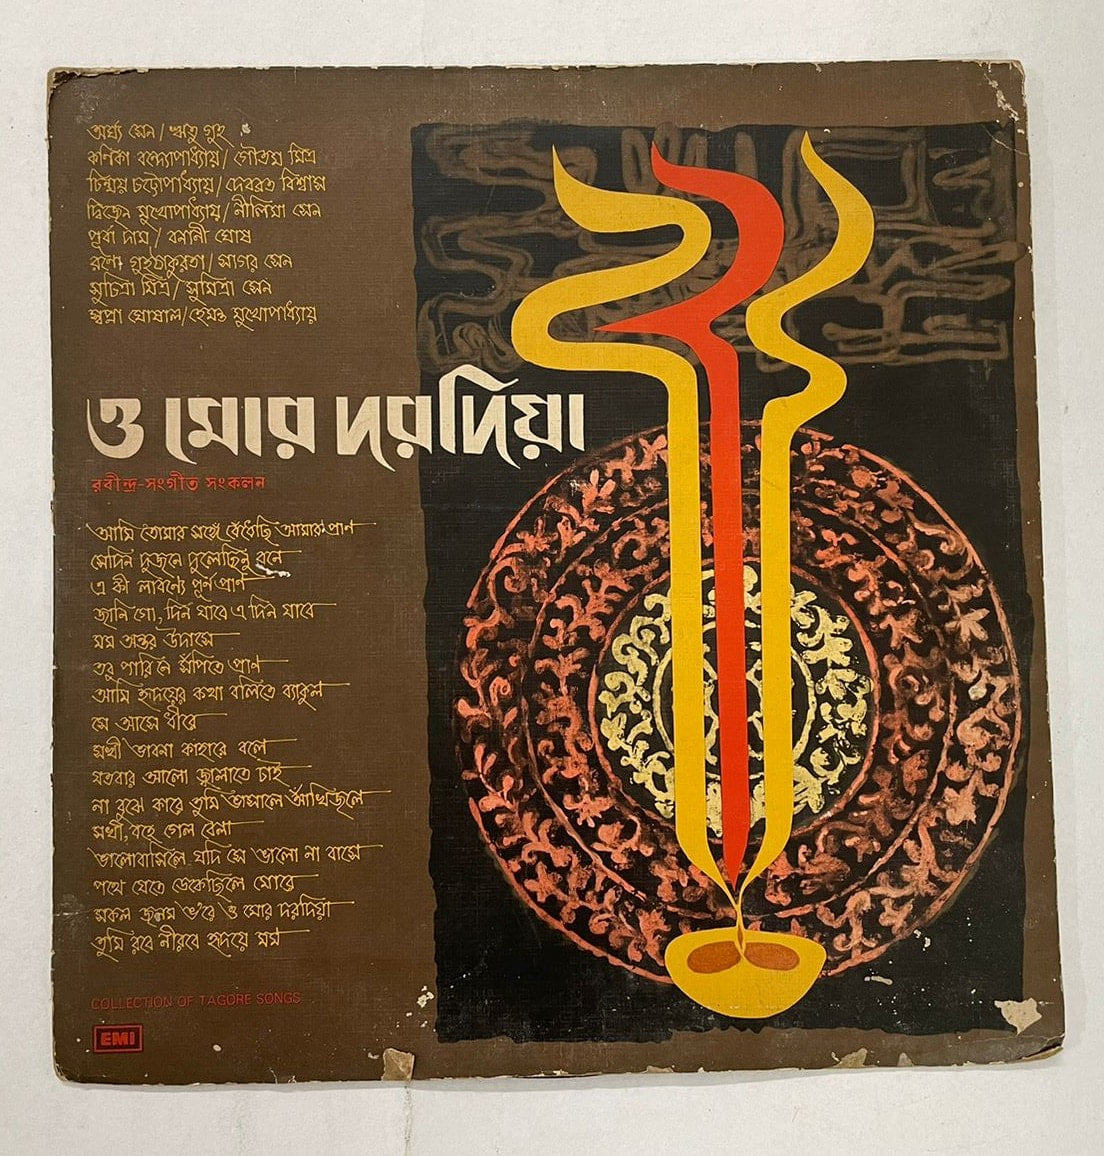 অর্ঘ্য সেন / ঋতু গুহ
কণিকা বন্দ্যোপাধ্যায় / গৌতম মিত্র
চিন্ময় চট্টোপাধ্যায় / দেবব্রত বিশ্বাস
দ্বিজেন মুখোপাধ্যায় / নীলিমা সেন
পূর্বা দাম / বনানী ঘোষ
রণো গুহঠাকুরতা / সাগর সেন
সুচিত্রা মিত্র / সুমিত্রা সেন
স্বপ্না ঘোষাল / হেমন্ত মুখোপাধ্যায়
ও মোর দরদিয়া
রবীন্দ্র-সংগীত সংকলন
আমি তোমার সঙ্গে বেঁধেছি আমার প্রাণ
সেদিন দুজনে দুলেছিনু বনে
এ কী লাবণ্যে পূর্ণ প্রাণ
জানি গো, দিন যাবে এ দিন যাবে
মম অন্তর উদাসে
তবু পারি নে সঁপিতে প্রাণ
আমি হৃদয়ের কথা বলিতে ব্যাকুল
সে আসে ধীরে
সখী ভাবনা কাহারে বলে
যতবার আলো জ্বালাতে চাই
না বুঝে কারে তুমি ভাসালে আঁখিজলে
সখী, বহে গেল বেলা
ভালোবাসিলে যদি সে ভালো না বাসে
পথে যেতে ডেকেছিলে মোরে
সকল জনম ভ'রে ও মোর দরদিয়া
তুমি রবে নীরবে হৃদয়ে মম
COLLECTION OF TAGORE SONGS
EMI